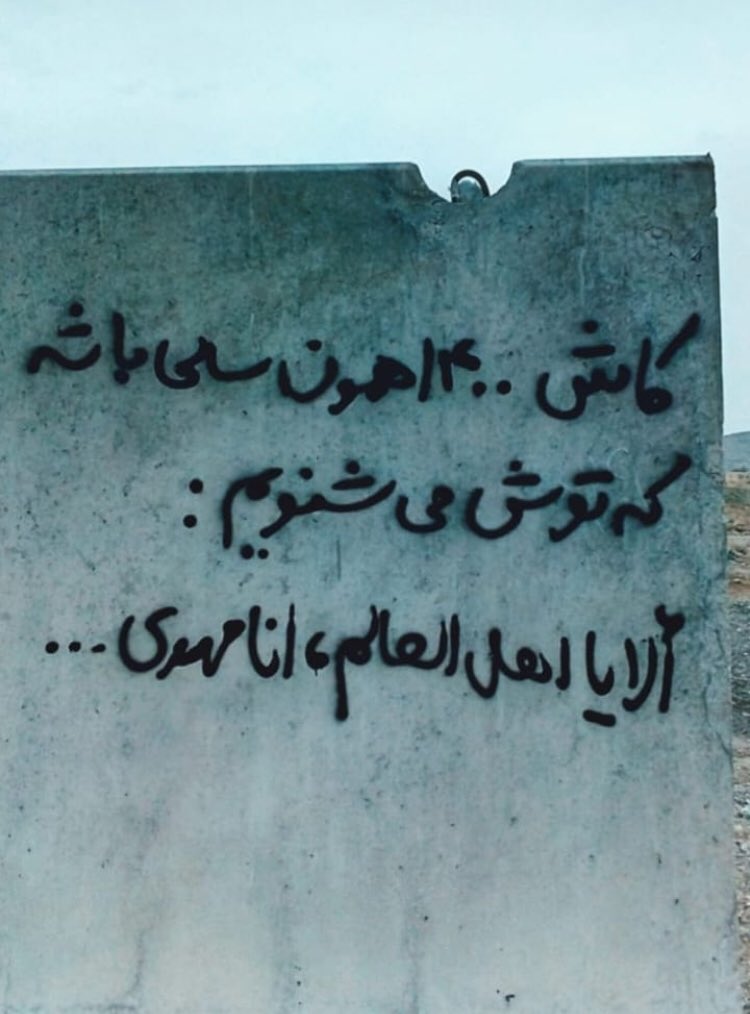 کاش ۱۴۰۰ همون سالی باشه
که توش می شنویم :
ألا یا اهل العالم، انا مهدی ...